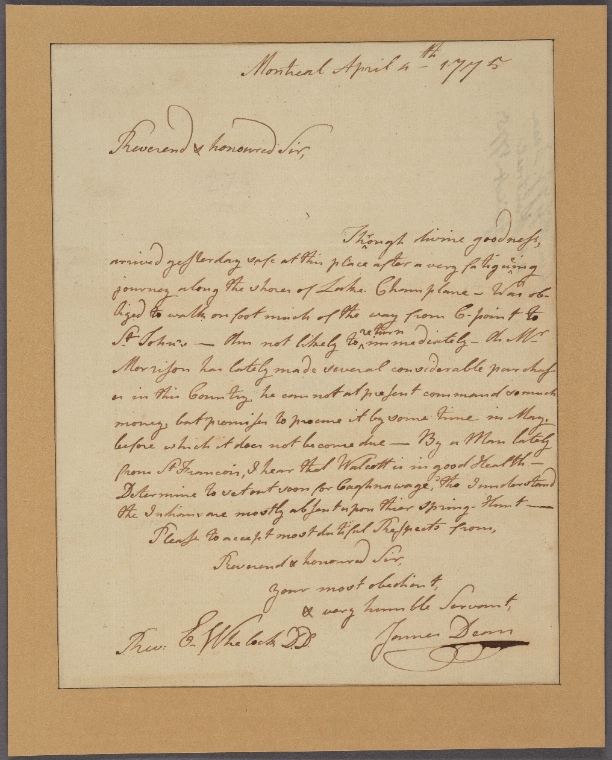 Montreal April 4th 1775
Reverend & honoured Sir,
Through divine goodness,
arrived yesterday safe at this place after a very fatiguing
journey along the shores of Lake Champlane - Was ob-
liged to walk on foot much of the way from C-point to
St. John's — Am not likely to return immediately - As Mr
Morrison has lately made several considerable purchas-
es in this Country, he cannot at present command so much
money, but promises to procure it by some time in May,
before which it does not become due — By a Man lately
from St Francois, I hear that Walcott is in good Health —
Determine to set out soon for Caghnawage, tho I understand
the Indians are mostly absent upon thier spring-Hunt —
Please to accept most dutiful Respects from,
Reverend & honoured Sir,
your most obedient,
& very humble Servant,
James Dean
Rev: E. Whelock D.D.